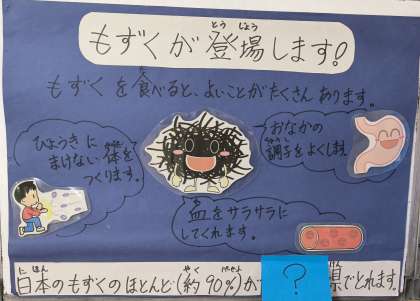 とうじょう
もずくが登場します!
もずくを食べると、よいことがたくさんあります。
ひょうきに
まけない体を
つくります。
おなかの
ちょうし
調子をよくしまえ
血をサラサラに
してくれます。
にほん やく
日本のもずくのほとんど(約90%)が ? 県でとれます。